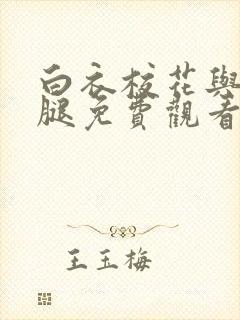 白衣校花與
腿免費觀看
王玉梅